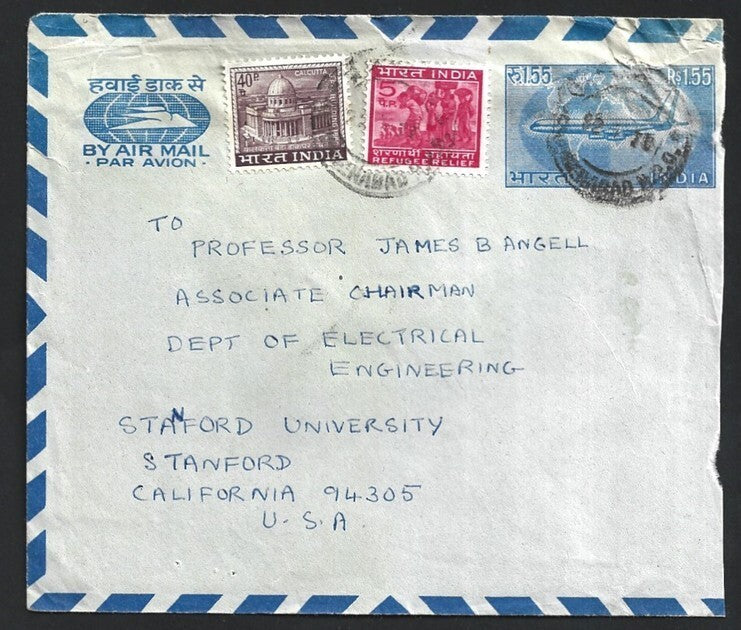 हवाई डाक से
BY AIR MAIL
· PAR AVION ·
40P
CALCUTTA
भारत INDIA
भारत INDIA
5
P.P.
शरणार्थी सहायता
REFUGEE RELIEF
रु1.55 Rs1.55
भारत INDIA
TO
PROFESSOR JAMES B ANGELL
ASSOCIATE CHAIRMAN
DEPT OF ELECTRICAL
ENGINEERING
STANFORD UNIVERSITY
STANFORD
CALIFORNIA 94305
U.S.A